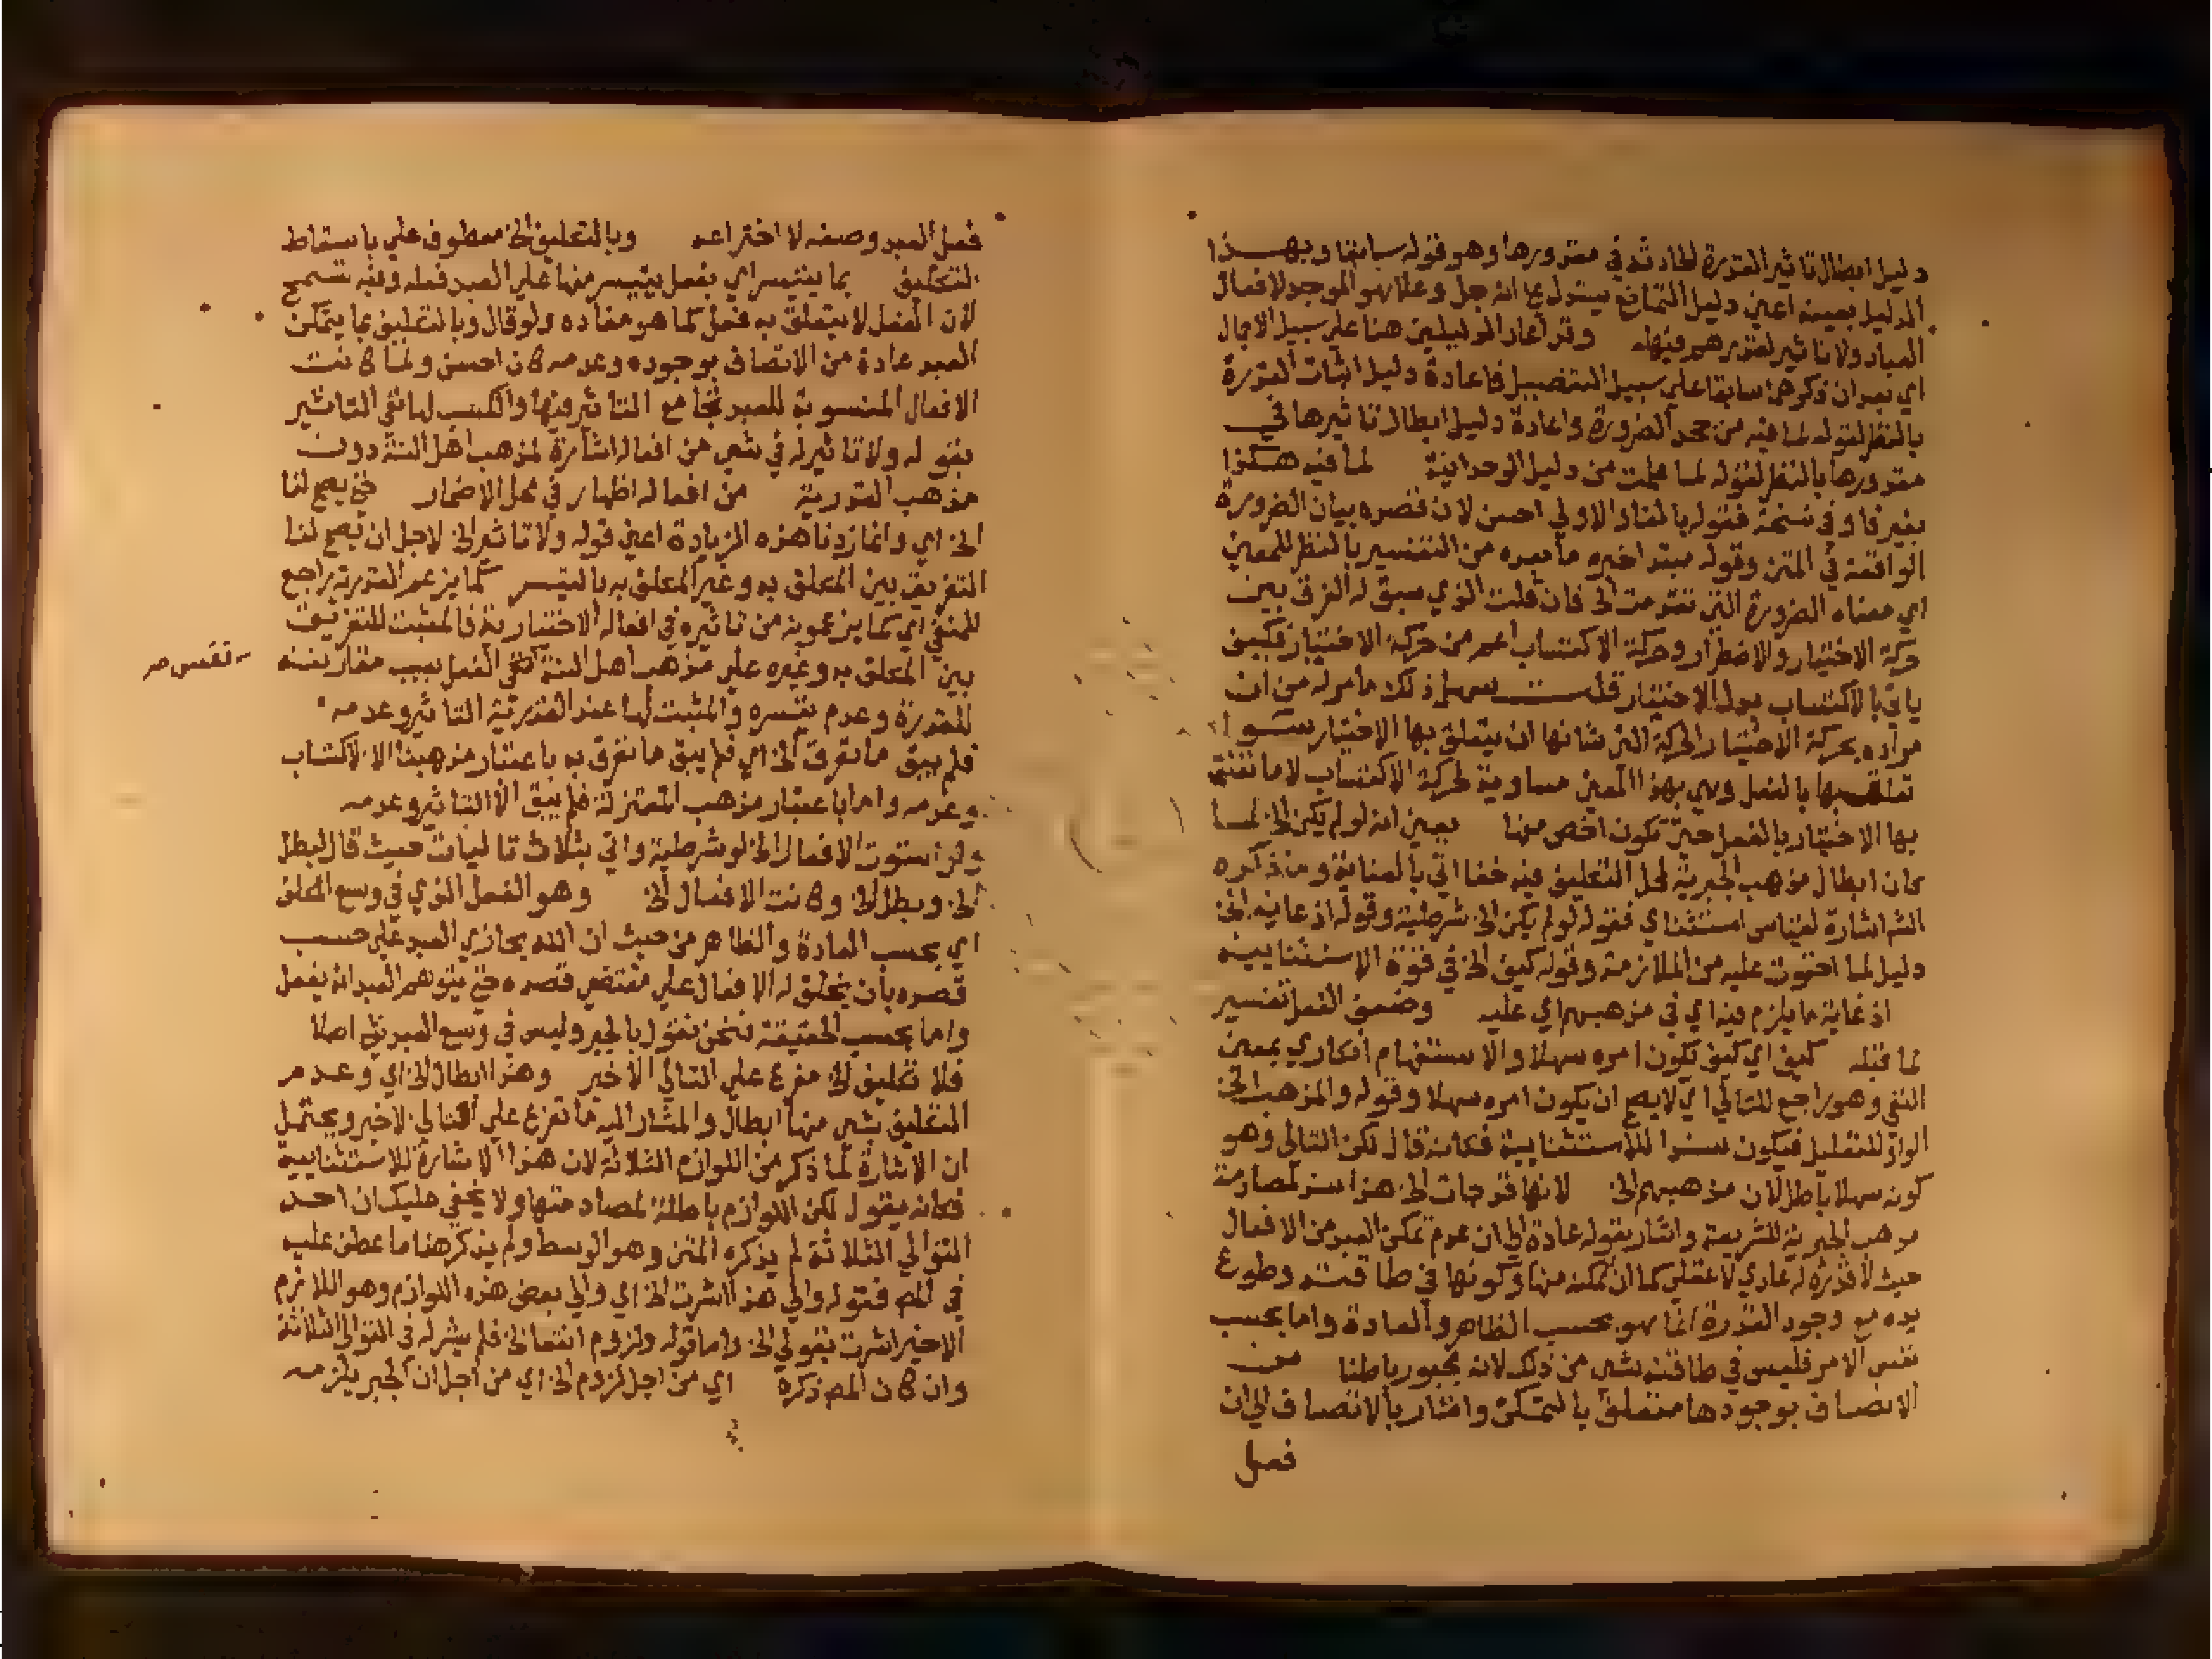 دليل ابطال تاثير القدرة الحادثة في مقدورها وهو قوله سابقا وبهذا
الدليل بعينه اعني دليل التمانع يستدل على انه جل وعلا هو الموجد لافعال
العباد ولا تاثير لقدرهم فيها وقد اعاد الدليلين هنا على سبيل الاجمال
اي بعد ان ذكرهما سابقا على سبيل التفصيل فاعادة دليل اثبات القدرة
بالنظر لقوله لما فيه من جحد الضرورة واعادة دليل ابطال تاثيرها في
مقدورها بالنظر لقوله لما علمت من دليل الوحدانية لما فيه هكذا
بغير فا وفي نسخة فقوله بالفا والاولى احسن لان قصده بيان الضرورة
الواقعة في المتن وقوله مبتدا خبره ما بعده من التفسير بالنظر للمعنى
اي معناه الضرورة التي تقدمت الخ فان قلت الذي سبق له الفرق بين
حركة الاختيار والاضطرار وحركة الاكتساب اعم من حركة الاختيار فكيف
ياتي بالاكتساب بدل الاختيار قلت سهل ذلك ما مر له من ان
مراده بحركة الاختيار الحركة التي شانها ان يتعلق بها الاختيار سوا
تعلق بها بالفعل وهي بهذا المعنى مساوية لحركة الاكتساب لا ما تعلق
بها الاختيار بالفعل حتى تكون اخص منها بمعنى انه لو لم يكن الخ لما
كان ابطال مذهب الجبرية لمحل التكليف فيه خفا اتى بالعناية وما ذكره
الش اشارة لقياس استثناي فقوله لو لم يكن الخ شرطية وقوله اذ غايته الخ
دليل لما احتوت عليه من الملازمة وقوله كيف الخ في قوة الاستثنايية
اذ غاية ما يلزم فيه اي في مذهبهم اي عليه وضعف الفعل تفسير
لما قبله كيف اي كيف يكون امره سهلا والاستفهام انكاري بمعنى
النفي وهو راجع للتالي اي لا يصح ان يكون امره سهلا وقوله والمذهب الخ
الواو للتعليل فيكون سندا للاستثنايية فكانه قال لكن التالي وهو
كونه سهلا باطل لان مذهبهم الخ لانها قد جات الخ هذا سند لمصادمة
مذهب الجبرية للشريعة واشار بقوله عادة الى ان عدم تمكن العبد من الافعال
حيث لا قدرة له عادي لا عقلي كما ان تمكنه منها وكونها في طاقته وطوع
يده مع وجود القدرة انما هو بحسب الظاهر والعادة واما بحسب
نفس الامر فليس في طاقته شي من ذلك لانه مجبور باطنا من
الاتصاف بوجودها متعلق بالتمكن واشار بالاتصاف الى ان
فعل
فعل العبد وصفه لا اختراعه وبالتكليف الخ معطوف على باسقاط
التكليف بما يتيسر اي بفعل يتيسر منها على العبد فعله وفيه تسمح
لان الفعل لا يتعلق به فعل كما هو مفاده ولو قال وبالتكليف بما يتمكن
العبد عادة من الاتصاف بوجوده وعدمه كان احسن ولما كانت
الافعال المنسوبة للعبد تجامع التاثير فيها والكسب لها نفى التاثير
بقوله ولا تاثير له في شي من افعاله اشارة لمذهب اهل السنة دون
مذهب القدرية من افعاله اظهار في محل الاضمار حتى يصح لنا
الخ اي وانما زدنا هذه الزيادة اعني قوله ولا تاثير الخ لاجل ان يصح لنا
التفريق بين المكلف به وغير المكلف به بالتيسر كما يزعم القدرية راجع
للمنفي اي كما يزعمونه من تاثيره في افعاله الاختيارية فالمثبت للتفريق
بين المكلف به وغيره على مذهب اهل السنة تاتي الفعل بسبب مقارنته
نفس صح
للقدرة وعدم تيسره والمثبت لها عند القدرية التاثير وعدمه
فلم يبق ما تفرق الخ اي فلم يبق ما نفرق به باعتبار مذهبنا الا الاكتساب
وعدمه واما باعتبار مذهب المعتزلة فلم يبق الا التاثير وعدمه
ولو استوت الافعال الخ لو شرطية واتى بثلاث تاليات حيث قال لبطل
الخ وبطل الخ وكانت الافعال الخ وهو الفعل الذي في وسع المكلف
اي بحسب العادة والظاهر من حيث ان الله يجازي العبد على حسب
قصده بان يخلق له الافعال على مقتضى قصده حتى يتوهم العبد انه يفعل
واما بحسب الحقيقة فنحن نقول بالجبر وليس في وسع العبد شي اصلا
فلا تكليف الخ مفرع على التالي الاخير وهذا ابطال الخ اي وعدم
التكليف بشي منها ابطال والمشار اليه ما تفرع على التالي الاخير ويحتمل
ان الاشارة لما ذكر من اللوازم الثلاثة لان هذا الاشارة للاستثنايية
فكانه يقول لكن اللوازم باطلة لمصادمتها ولا يخفى عليك ان احد
التوالي الثلاثة لم يذكره المتن وهو الوسط ولم يذكر هنا ما عطف عليه
في المص فقوله والى هذا اشرت الخ اي والى بعض هذه اللوازم وهو اللازم
الاخير اشرت بقولي الخ واما قوله ولزوم انتفا الخ فلم يشر له في التوالي الثلاثة
وان كان المص ذكره اي من اجل لزوم الخ اي من اجل ان الجبر يلزمه